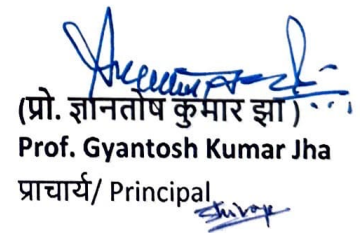 (प्रो. ज्ञानतोष कुमार झा)
Prof. Gyantosh Kumar Jha
प्राचार्य/ Principal